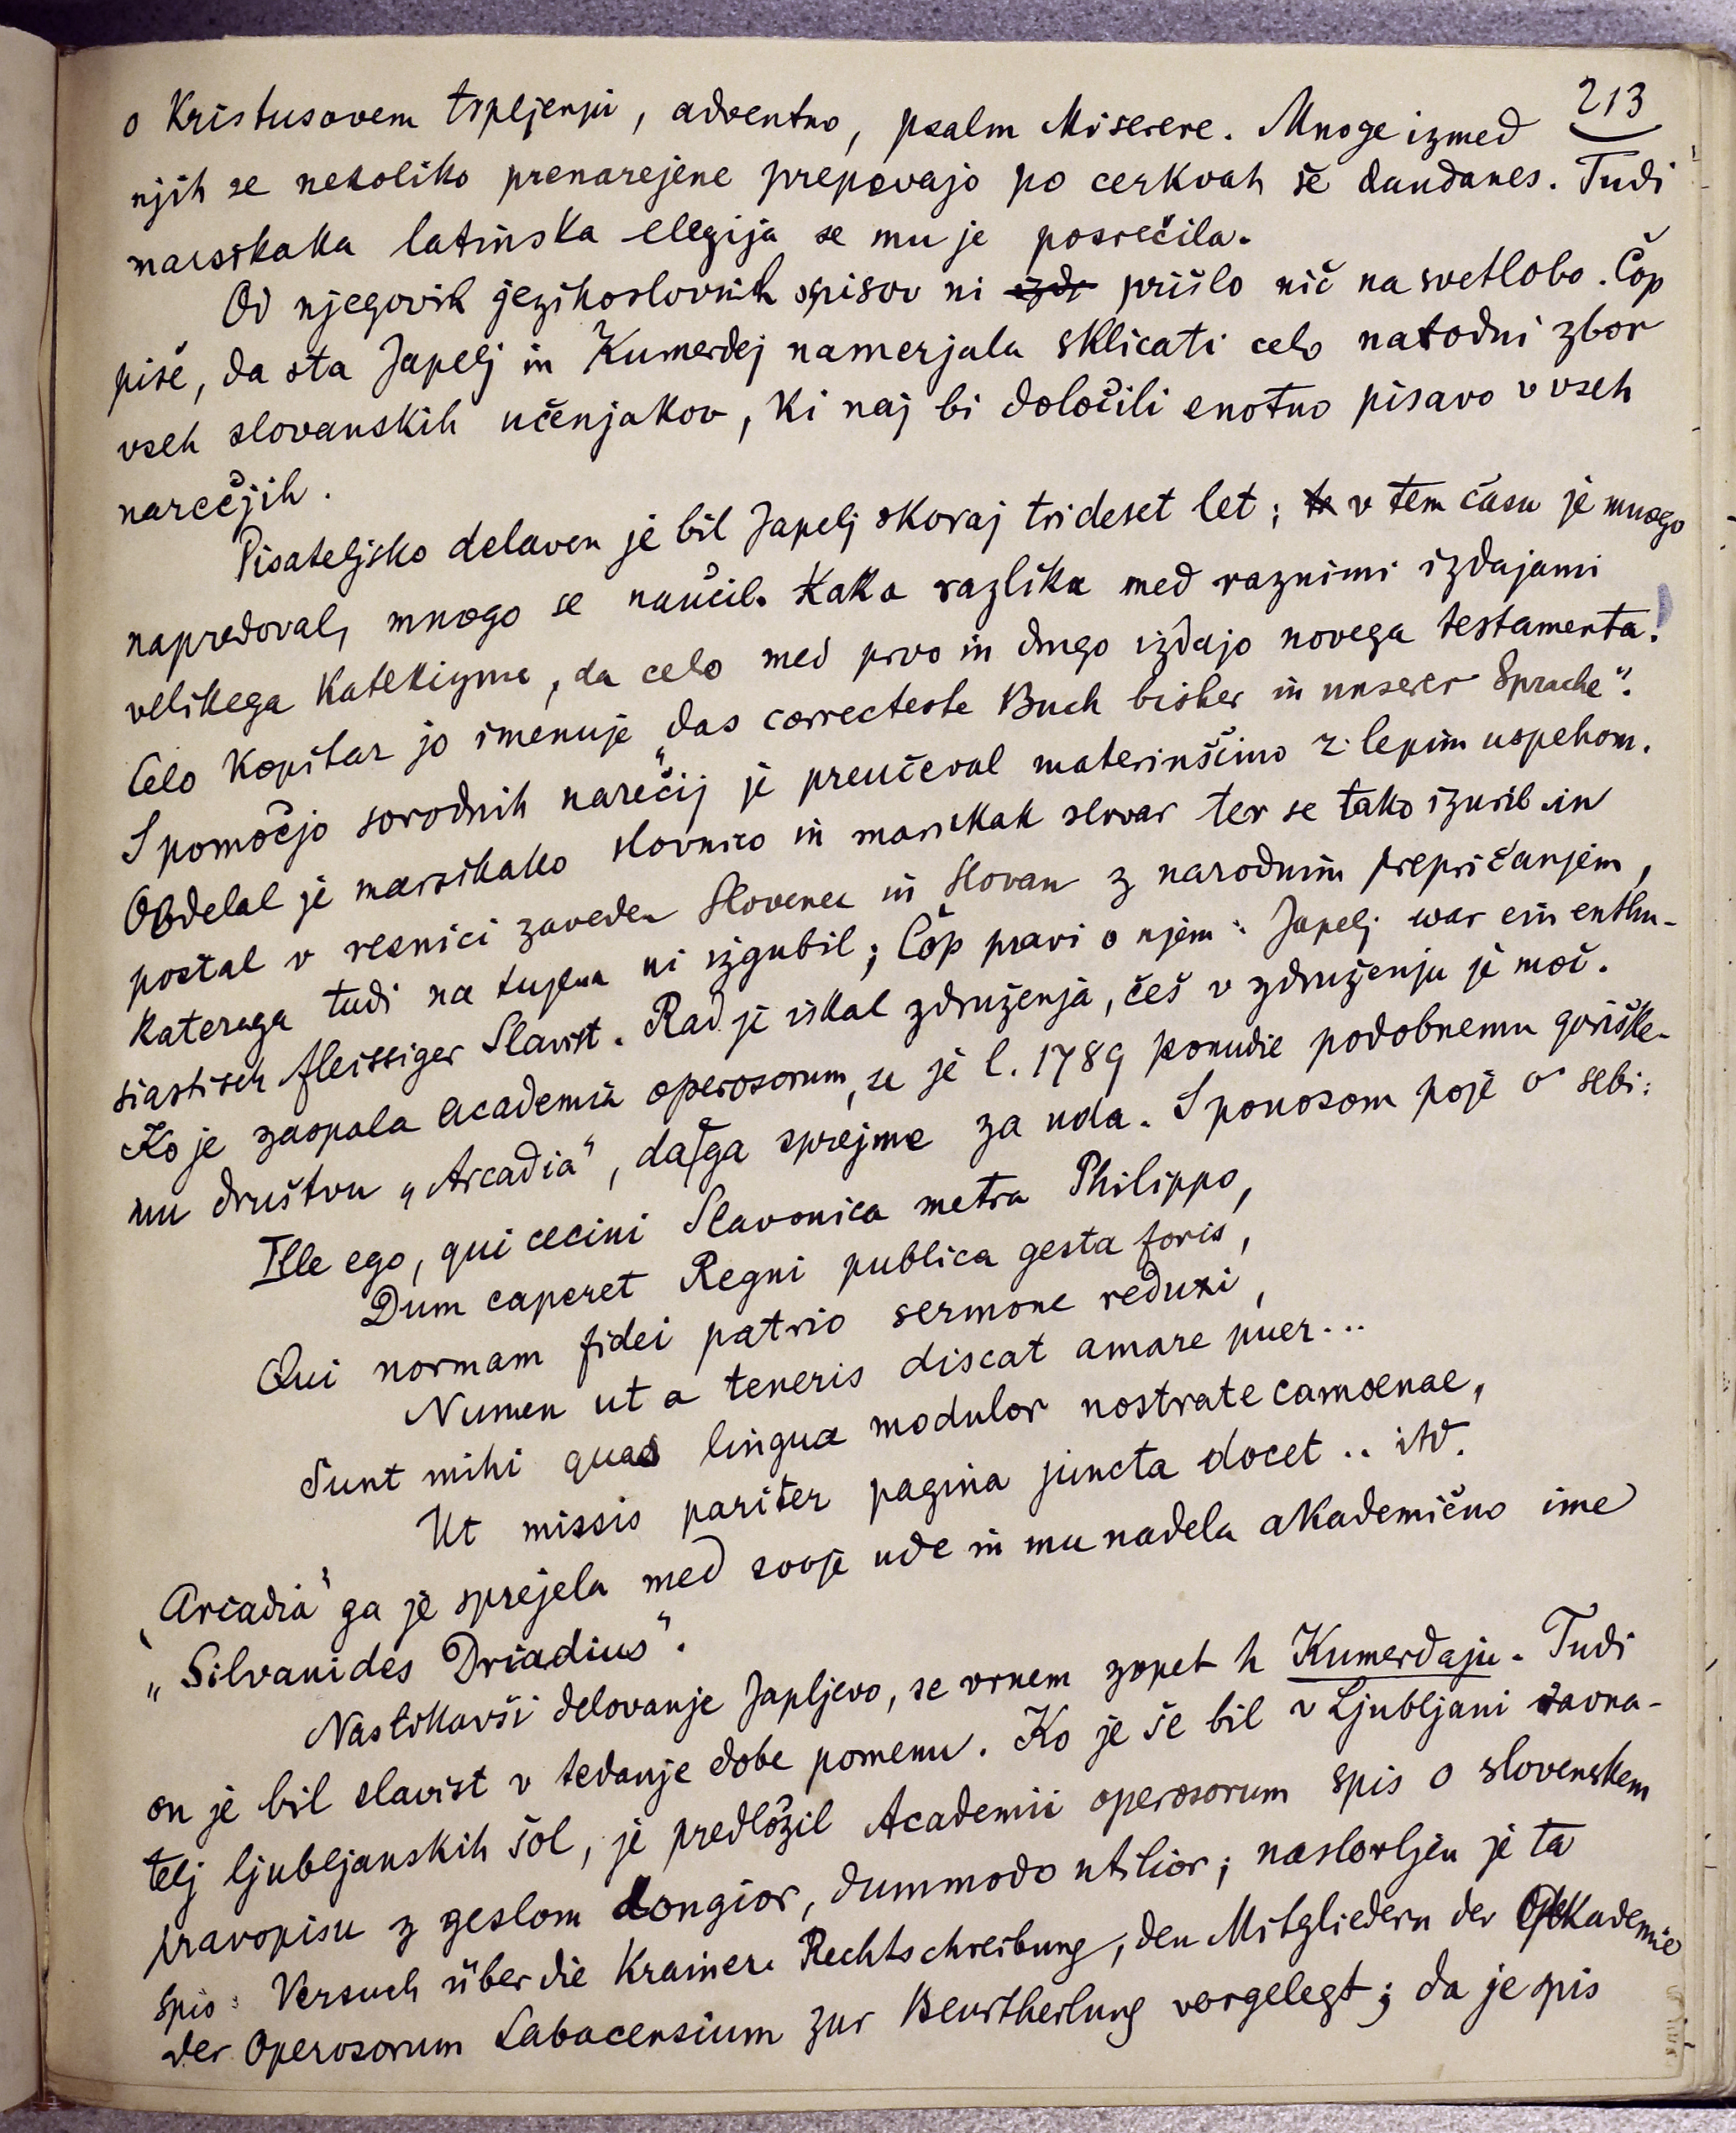 213
o Kristusovem trpljenju, adventno, psalm Miserere. Mnoge izmed
njih se nekoliko prenarejene prepevajo po cerkvah še dandanes. Tudi
marsikaka latinska elegija se mu je posrečila.
Od njegovih jezikoslovnih spisov ni izdr prišlo nič na svetlobo. Čop
piše, da sta Japelj in Kumerdej namerjala sklicati celo narodni zbor
vseh slovanskih učenjakov, ki naj bi določili enotno pisavo v vseh
narečjih.
Pisateljsko delaven je bil Japelj skoraj trideset let; te v tem času je mnogo
napredoval, mnogo se naučil. Kaka razlika med raznimi izdajami
velikega katekizma, da celo med prvo in drugo izdajo novega testamenta!
Celo Kopitar jo imenuje „das correcteste Buch bisher in unserer Sprache“.
S pomočjo sorodnih narečij je preučeval materinščino z lepim uspehom.
Obdelal je marsikako slovnico in marsikak slovar ter se tako izuril in
postal v resnici zaveden Slovenec in Slovan z narodnim prepričanjem,
katerega tudi na tujem ni izgubil; Čop pravi o njem: Japelj war ein enthu-
siastisch fleissiger Slavist. Rad je iskal združenja, češ v združenju je moč.
Ko je zaspala academia operosorum, se je l. 1789 ponudil podobnemu goriške-
mu društvu „Arcadia“, da ga sprejme za uda. S ponosom poje o sebi:
Ille ego, qui cecini Slavonica metra Philippo,
Dum caperet Regni publica gesta foris,
Qui normam fidei patrio sermone reduxi,
Numen ut a teneris discat amare puer...
Sunt mihi quas lingua modulor nostrate camoenae,
Ut missis pariter pagina juncta docet .. itd.
„Arcadia“ ga je sprejela med svoje ude in mu nadela akademično ime
„Silvanides Driadius“.
Nastikavši delovanje Japljevo, se vrnem zopet h Kumerdeju. Tudi
on je bil slavist v tedanje dobe pomenu. Ko je še bil v Ljubljani ravna-
telj ljubljanskih šol, je predložil Academii operosorum spis o slovenskem
pravopisu z geslom Longior, dummodo utilior; naslovljen je ta
spis: Versuch über die Krainer. Rechtschreibung, den Mitgliedern der Akademie
der Operosorum Labacensium zur Beurtheilung vorgelegt; da je spis